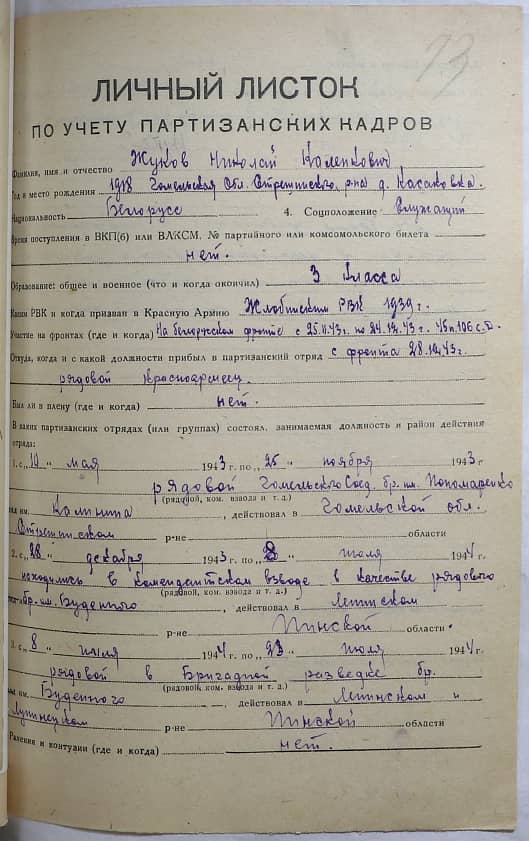 73
ЛИЧНЫЙ ЛИСТОК
ПО УЧЕТУ ПАРТИЗАНСКИХ КАДРОВ
Фамилия, имя и отчество Жуков Николай
Год и место рождения 1918 Гомельская Обл. Стрешинского р-на д. Касаковка.
Национальность Белорусс 4. Соцположение Служащий
Время поступления в ВКП(б) или ВЛКСМ, № партийного или комсомольского билета
нет.
Образование: общее и военное (что и когда окончил) 3 класса
Каким РВК и когда призван в Красную Армию Жлобинским РВК 1939 г.
Участие на фронтах (где и когда) На белорусском фронте с 25.11.43 г. по 24.12.43 г. 106 с.д.
Откуда, когда и с какой должности прибыл в партизанский отряд с фронта 28.12.43 г.
рядовой красноармеец.
Был ли в плену (где и когда) нет.
В каких партизанских отрядах (или группах) состоял, занимаемая должность и район действия
отряда:
1. с „ “ мая 1943 г. по „25 “ ноября 1943 г
рядовой Гомельского Соед. бр. им. Пономаренко
(рядовой, ком. взвода и т. д.)
им. Калинина, действовал в Гомельской обл.
Стрешинском р-не области
2. с „28 “ декабря 1943 г. по „ “ июля 1944 г.
находились в комендантском взводе в качестве рядового
(рядовой, ком. взвода и т. д.)
бр. им. Буденного, действовал в Ленинском
р-не Пинской области.
3. с „8 “ июля 1944 г. по „23 “ июля 1944 г.
рядовой в Бригадной разведке бр.
(рядовой, ком. взвода и т. д.)
им. Буденного, действовал в Ленинском и
Лунинецком р-не Пинской области
Ранения и контузии (где и когда) нет.